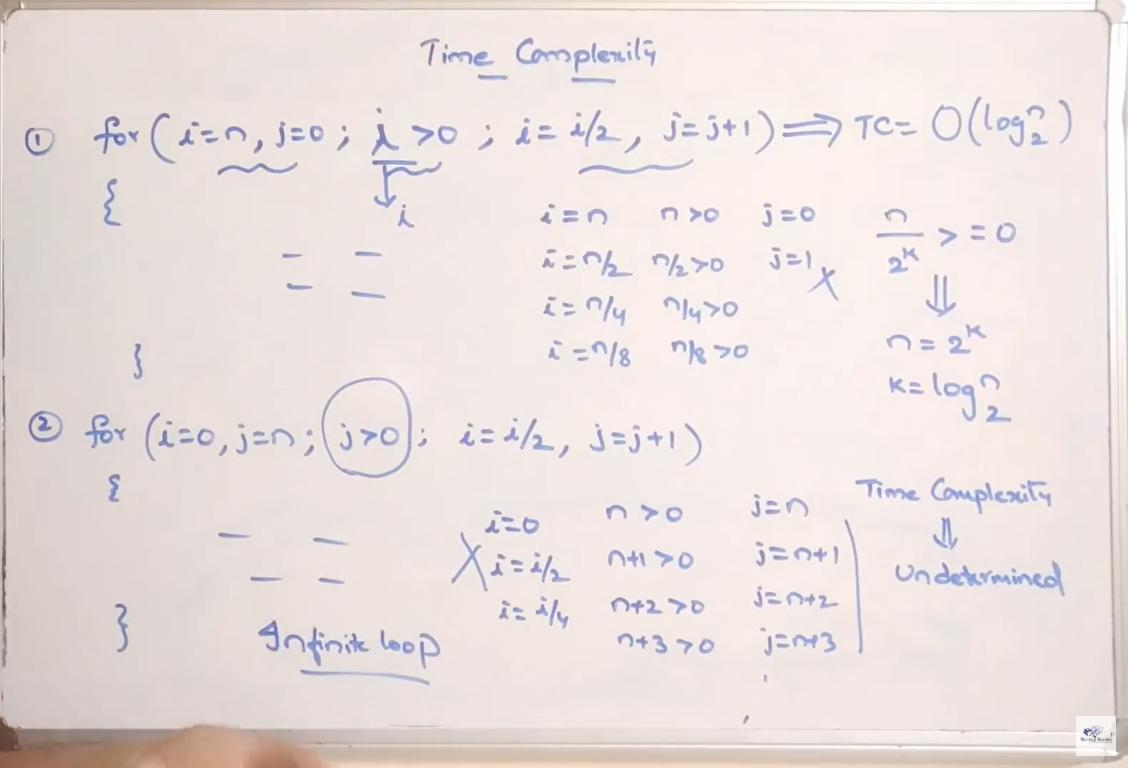 Time Complexity
① for ( i=n, j=0 ; i >0 ; i = i/2, j=j+1) ⇒ TC= O(log₂n)
{
i
i=n n>0 j=0
i=n/2 n/2>0 j=1 X
i=n/4 n/4>0
i=n/8 n/8>0
n/2ᵏ >=0
⇓
n=2ᵏ
k=log₂n
}
② for (i=0, j=n ; j>0 ; i=i/2, j=j+1)
{
i=0 n>0 j=n
X i=i/2 n+1>0 j=n+1
i=i/4 n+2>0 j=n+2
n+3>0 j=n+3
Time Complexity
⇓
Undetermined
}
Infinite loop